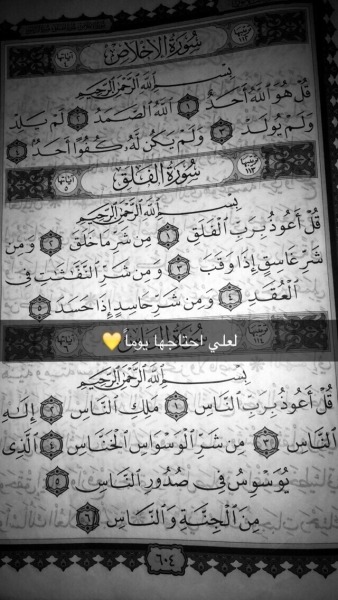 سُورَةُ الإِخْلَاصِ
بِسْمِ اللَّهِ الرَّحْمَٰنِ الرَّحِيمِ
قُلْ هُوَ اللَّهُ أَحَدٌ ١ اللَّهُ الصَّمَدُ ٢ لَمْ يَلِدْ
وَلَمْ يُولَدْ ٣ وَلَمْ يَكُن لَّهُ كُفُوًا أَحَدٌ ٤
سُورَةُ الفَلَقِ
بِسْمِ اللَّهِ الرَّحْمَٰنِ الرَّحِيمِ
قُلْ أَعُوذُ بِرَبِّ الْفَلَقِ ١ مِن شَرِّ مَا خَلَقَ ٢ وَمِن
شَرِّ غَاسِقٍ إِذَا وَقَبَ ٣ وَمِن شَرِّ النَّفَّٰثَٰتِ فِي
الْعُقَدِ ٤ وَمِن شَرِّ حَاسِدٍ إِذَا حَسَدَ ٥
لعلي احتاجها يوماً💛
بِسْمِ اللَّهِ الرَّحْمَٰنِ الرَّحِيمِ
قُلْ أَعُوذُ بِرَبِّ النَّاسِ ١ مَلِكِ النَّاسِ ٢ إِلَٰهِ
النَّاسِ ٣ مِن شَرِّ الْوَسْوَاسِ الْخَنَّاسِ ٤ الَّذِي
يُوَسْوِسُ فِي صُدُورِ النَّاسِ ٥
مِنَ الْجِنَّةِ وَالنَّاسِ ٦
٦٠٤